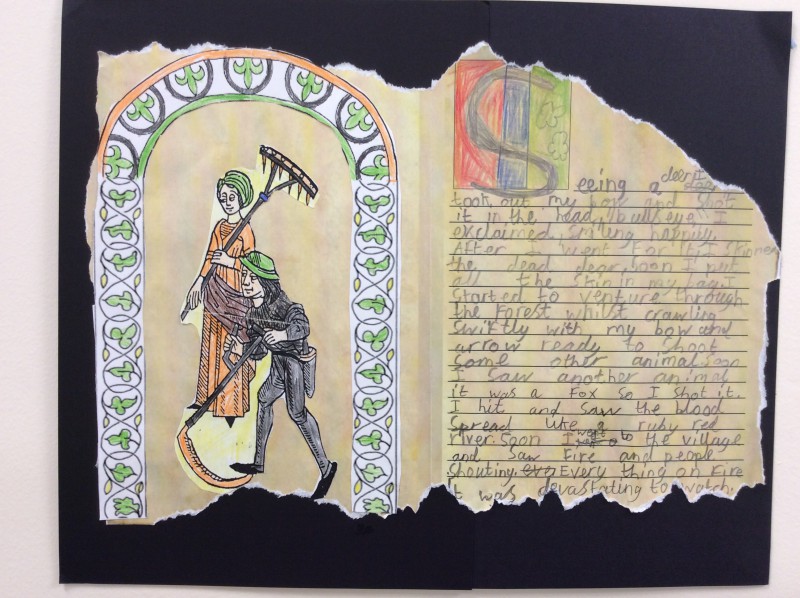 Seeing a deer, I
took out my bow and shot
it in the head, bullseye I
exclaimed, smiling happily.
After I went for it, I skinned
the dead dear, soon I put
all the skin in my bag. I
started to venture through
the forest whilst crawling
swiftly with my bow and
arrow ready to shoot
some other animal. Soon
I saw another animal
it was a fox so I shot it.
I hit and saw the blood
spread like a ruby red
river. Soon I went to the village
and saw fire and people
shouting. Every thing on fire
it was devastating to watch.